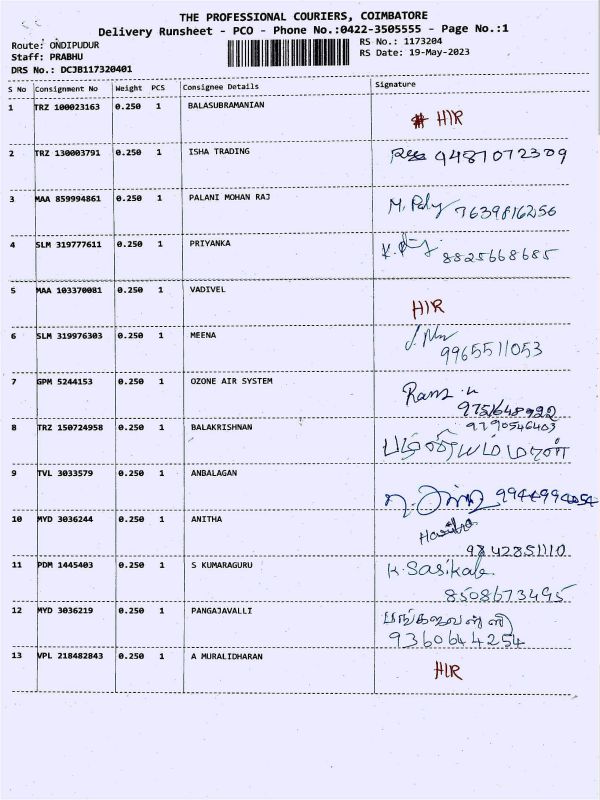 THE PROFESSIONAL COURIERS, COIMBATORE
Delivery Runsheet - PCO - Phone No.:0422-3505555 - Page No.:1
Route: ONDIPUDUR
Staff: PRABHU
DRS No.: DCJB117320401
RS No.: 1173204
RS Date: 19-May-2023
S No Consignment No Weight PCS Consignee Details Signature
1 TRZ 100023163 0.250 1 BALASUBRAMANIAN
HIR
2 TRZ 130003791 0.250 1 ISHA TRADING
9487072309
3 MAA 859994861 0.250 1 PALANI MOHAN RAJ
M. 7639816256
4 SLM 319777611 0.250 1 PRIYANKA
K. 8825668685
5 MAA 103370081 0.250 1 VADIVEL
HIR
6 SLM 319976303 0.250 1 MEENA
9965511053
7 GPM 5244153 0.250 1 OZONE AIR SYSTEM
9751648922
8 TRZ 150724958 0.250 1 BALAKRISHNAN
9790546403
9 TVL 3033579 0.250 1 ANBALAGAN
9944994054
10 MYD 3036244 0.250 1 ANITHA
9842851110
11 PDM 1445403 0.250 1 S KUMARAGURU
K. Sasikala
8508673495
12 MYD 3036219 0.250 1 PANGAJAVALLI
பங்கஜவள்ளி
9360644254
13 VPL 218482843 0.250 1 A MURALIDHARAN
HIR